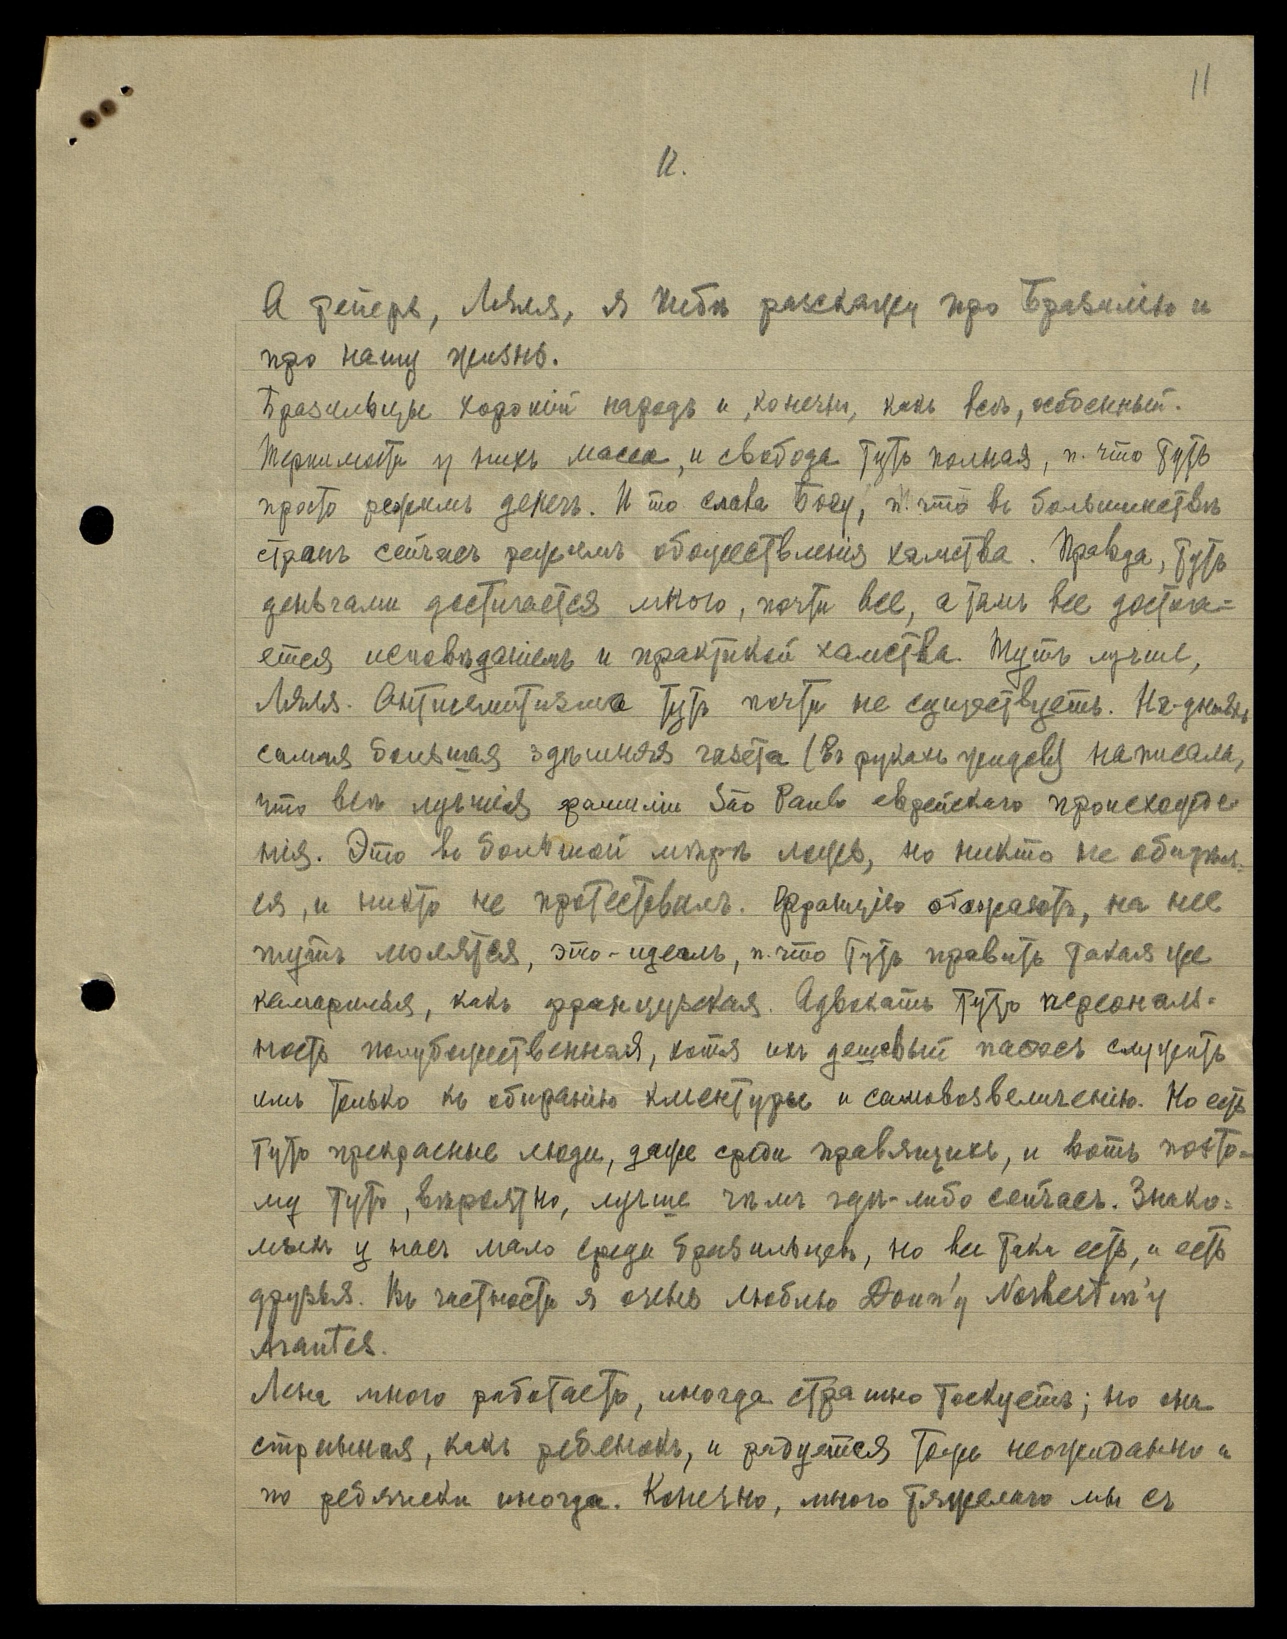 11
12.
А теперь, Ляля, я тебѣ разскажу про Бразилію и
про нашу жизнь.
Бразильцы хорошій народъ и, конечно, какъ всѣ, особенный.
Терпимости у нихъ масса, и свобода тутъ полная, п. что тутъ
просто режимъ денегъ. И то слава Богу, п. что въ большинствѣ
странъ сейчасъ режимъ обожествленія хамства. Правда, тутъ
деньгами достигается много, почти все, а тамъ все достига=
ется исповѣданіемъ и практикой хамства. Тутъ лучше,
Ляля. Антисемитизма тутъ почти не существуетъ. На-дняхъ
самая большая здѣшняя газета (въ рукахъ жидовъ) написала,
что всѣ лучшія фамиліи São Paulo еврейскаго происхожде
нія. Это въ большой мѣрѣ ложь, но никто не обидѣл-
ся, и никто не протестовалъ. Францію обожаютъ, на нее
тутъ молятся, это-идеалъ, п. что тутъ правитъ такая же
камарилья, какъ французская. Адвокатъ тутъ персональ-
ность полубожественная, хотя ихъ дешевый пафосъ служитъ
имъ только къ обиранію клиентуры и самовозвеличенію. Но есть
тутъ прекрасные люди, даже среди правящихъ, и вотъ поэто-
му тутъ, вѣроятно, лучше чѣмъ гдѣ-либо сейчасъ. Знако=
мыхъ у насъ мало среди бразильцевъ, но все таки есть, и есть
друзья. Въ частности я очень люблю Donn'у Norbertin'у
Arantes.
Лена много работаетъ, иногда страшно тоскуетъ; но она
странная, какъ ребенокъ, и радуется тоже неожиданно и
по ребячески иногда. Конечно, много тяжелаго мы съ